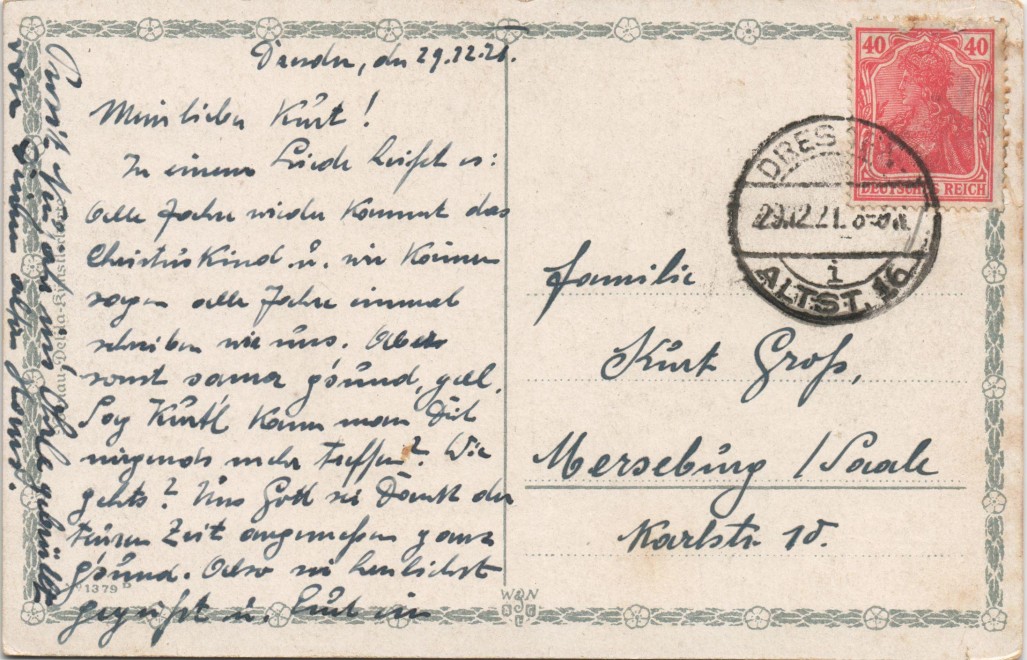 Dresden, den 29.12.21.
Mein lieber Kurt!
In einem Liede heißt es:
Alle Jahre wieder kommt das
Christuskind u. wir können
sagen alle Jahre einmal
schreiben wir uns. Aber
sonst samma gsund, gell.
Sag Kurtl kann man Dich
nirgends mehr treffen? Wie
gehts? Uns Gott sei Dank der
teuren Zeit angemessen ganz
gsund. Also sei herzlichst
gegrüßt u.
Prosit Neujahr
von Deinem alten
40 40
DEUTSCHES REICH
DRESDEN
29.12.21.
i
ALTST. 16
Familie
Kurt Groß,
Merseburg / Saale
Karlstr. 10.
1379
W&N